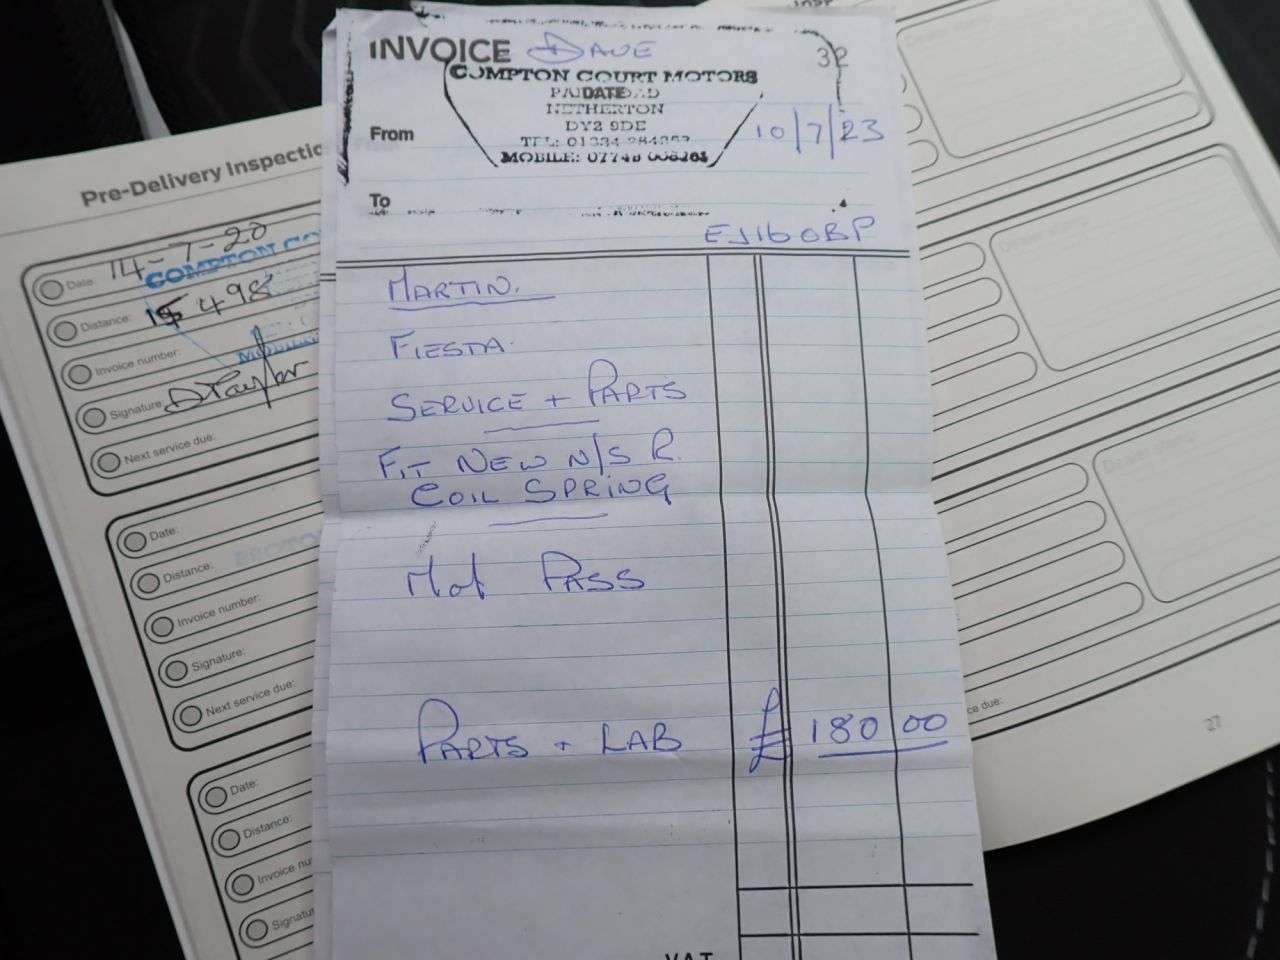 INVOICE DAVE 32
COMPTON COURT MOTORS
DATE
NETHERTON
DY2 9DE
From
10/7/23
TEL: 01384
MOBILE: 07748
To
EJ16 OBP
MARTIN.
FIESTA.
SERVICE + PARTS
FIT NEW N/S R.
COIL SPRING
Mot PASS
PARTS + LAB £ 180 00
VAT
Pre-Delivery Inspection
Date: 14-7-20
COMPTON CO
Distance: 498
Invoice number:
Signature: DTaylor
Next service due:
Date:
Distance:
Invoice number:
Signature:
Next service due:
Date:
Distance:
Invoice nu
Signatur
ce due:
27